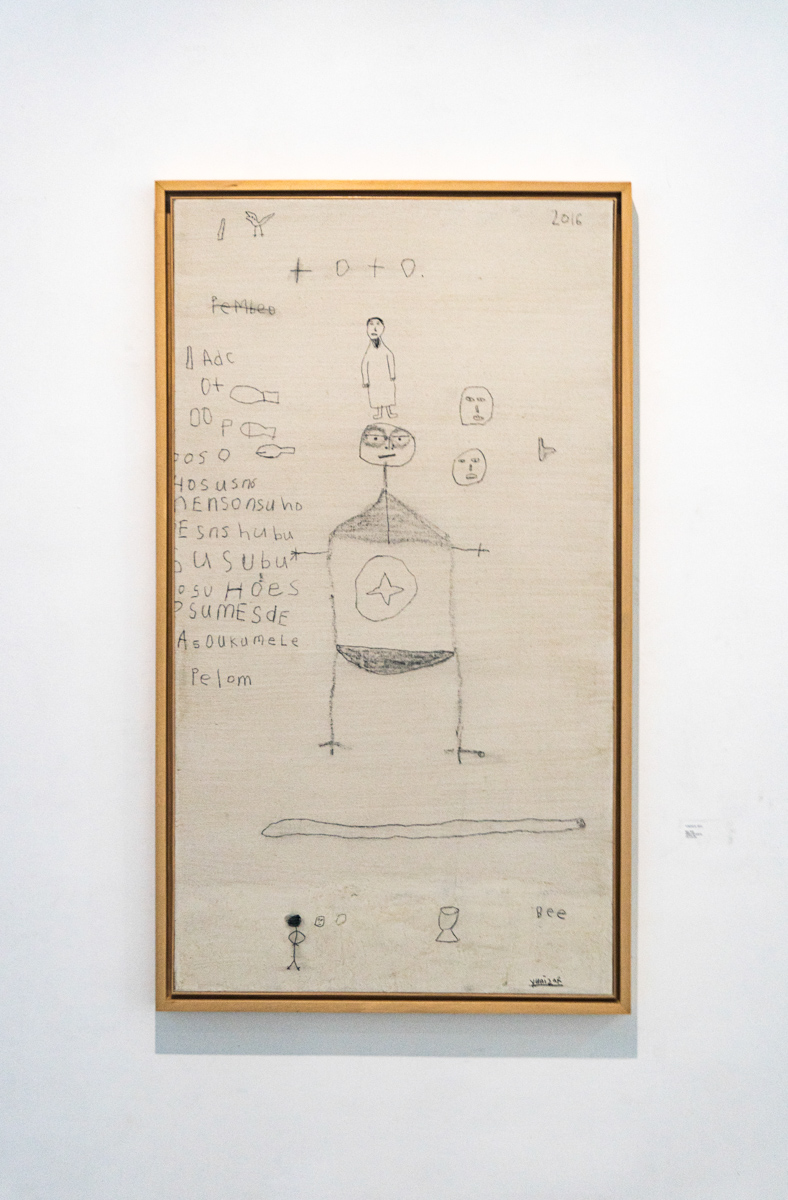 2016
+ O + O.
PeMbeo
Adc
O+
OO P
OOSO
HOSusno
MENSONsuho
Esns hubu
SUSUbu
OSU HOES
PSUMESdE
AsOUKuMeLe
Pelom
Bee
yunizar